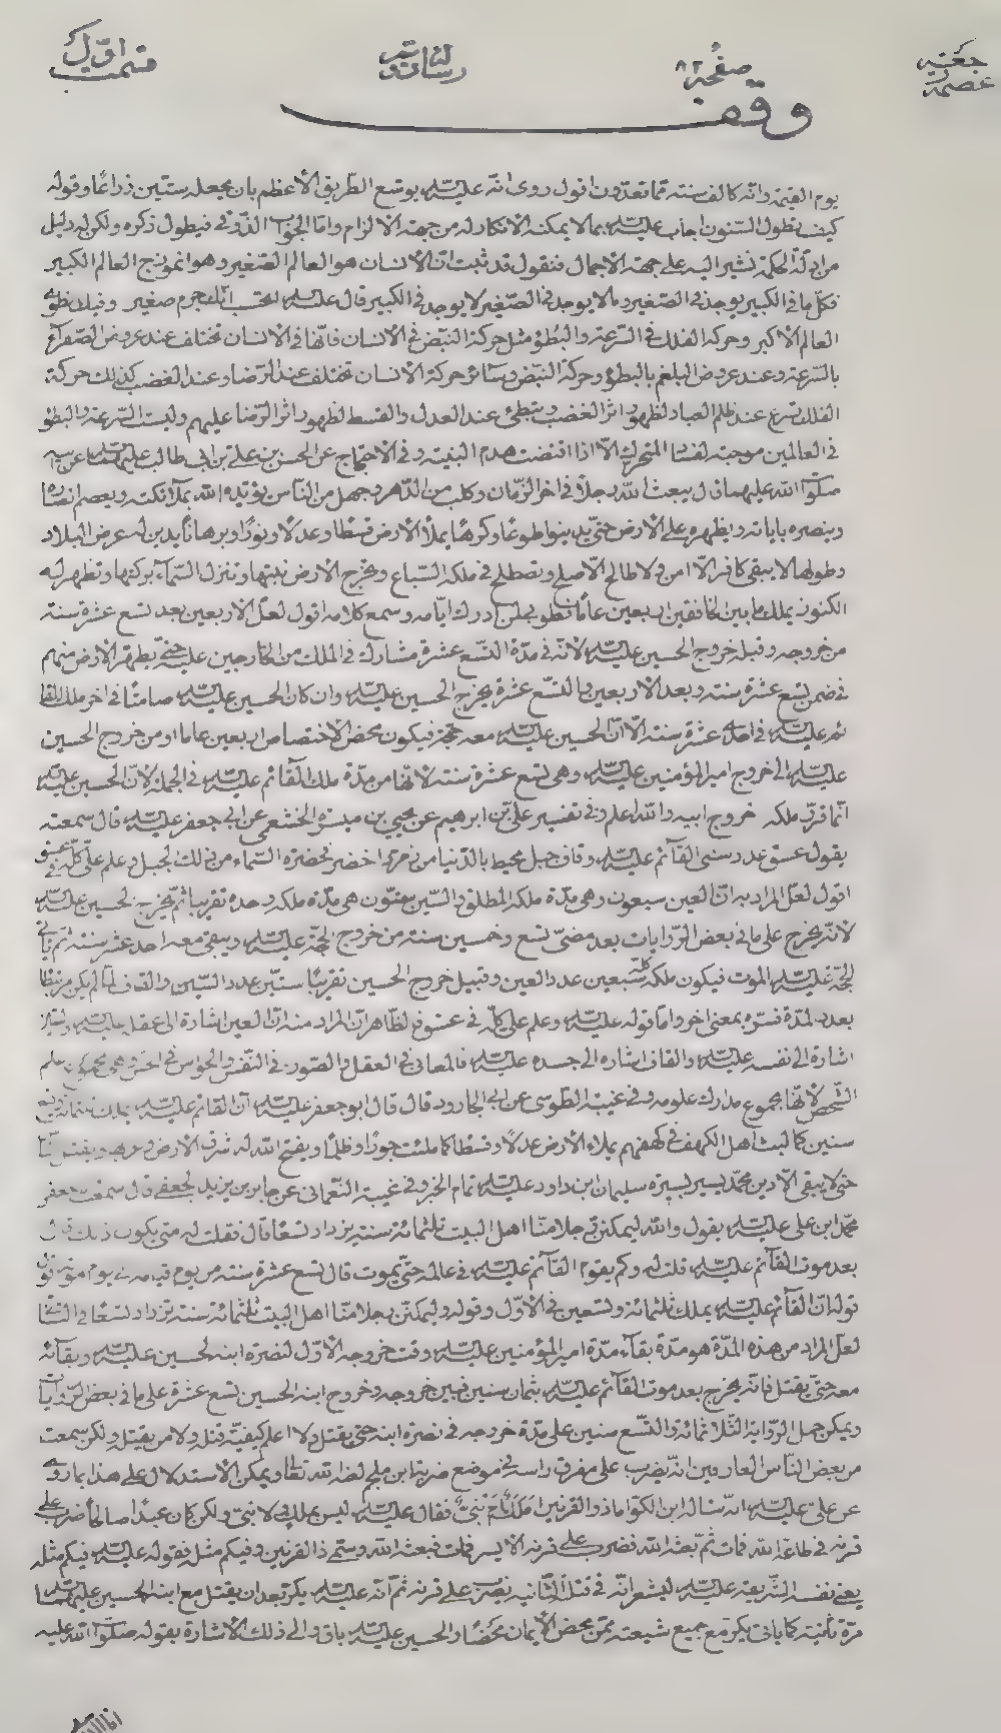 جعتيه
عصمة
صفحه ٨٢
قسمت اوّل
وقف
يوم القيمة وانّه كالف سنة مما تعدّون اقول روى انّه عليه السّلم يوسّع الطّريق الأعظم بان يجعله ستّين ذراعًا وقوله
كيف تطول السّنون اجاب عليه السّلم بما لا يمكنه الانكار له من جهة الالزام وامّا الجواب الذّوقى فيطول ذكره ولكن له دليل
من ادلّة الحكمة نشير اليه على جهة الاجمال فنقول قد ثبت انّ الانسان هو العالم الصّغير وهو انموذج العالم الكبير
فكلّ ما فى الكبير يوجد فى الصّغير وما لا يوجد فى الصّغير لا يوجد فى الكبير قال عليه السّلم اتحسب انّك جرم صغير وفيك انطوى
العالم الأكبر وحركة الفلك فى السّرعة والبطؤ مثل حركة النّبض فى الانسان فانّها فى الانسان تختلف عند عروض الصّفرآء
بالسّرعة وعند عروض البلغم بالبطؤ وحركة النّبض وسائر حركة الانسان تختلف عند الرّضا وعند الغضب كذلك حركة
الفلك تسرع عند ظلم العباد لظهور اثر الغضب وتبطئ عند العدل والقسط لظهور اثر الرّضا عليهم وليست السّرعة والبطؤ
فى العالمين موجبة لفساد المتحرك الّا اذا اقتضت هدم البنية وفى الاحتجاج عن الحسن بن علىّ بن ابى طالب عليهما السّلم عن ابيه
صلوات الله عليهما قال يبعث الله رجلًا فى اخر الزّمان وكلب من الدّهر وجهل من النّاس يؤيّده الله بملآئكته ويعصم انصاره
وينصره باياته ويظهره على الارض حتّى يدينوا طوعًا وكرهًا يملأ الارض قسطًا وعدلًا ونورًا وبرهانًا يدين له عرض البلاد
وطولها لا يبقى كافر الّا امن ولا طالح الّا صلح وتصطلح فى ملكه السّباع وتخرج الارض نبتها وتنزل السّمآء بركتها وتظهر له
الكنوز يملك ما بين الخافقين اربعين عامًا فطوبى لمن ادرك ايّامه وسمع كلامه اقول لعلّ الاربعين بعد تسع عشرة سنة
من خروجه وقبل خروج الحسين عليه السّلم لانّه فى مدّة التّسع عشرة مشارك فى الملك من الخارجين عليه حتّى يطهّر الارض منهم
فى ضمن تسع عشرة سنة وبعد الاربعين والتّسع عشرة يخرج الحسين عليه السّلم وان كان الحسين عليه السّلم صامتًا فى اخر ملك القا
ئم عليه السّلم فى احدى عشرة سنة الّا انّ الحسين عليه السّلم معه حجّة فيكون محض الاختصاص اربعين عاما او من خروج الحسين
عليه السّلم الى خروج امير المؤمنين عليه السّلم وهى تسع عشرة سنة لانّها من مدّة ملك القآئم عليه السّلم فى الجملة لانّ الحسين عليه السّلم
انّما قرّر ملكه خروج ابيه والله اعلم وفى تفسير علىّ بن ابرهيم عن يحيى بن ميسرة الخثعمى عن ابى جعفر عليه السّلم قال سمعته
يقول عسق عدد سنى القآئم عليه السّلم وقاف جبل محيط بالدّنيا من زمرّد اخضر فخضرة السّمآء من ذلك الجبل وعلم علىّ كلّه فى عسق
اقول لعلّ المراد به انّ العين سبعون وهى مدّة ملكه المطلق والسّين ستّون هى مدّة ملكه وحده تقريبا ثمّ يخرج الحسين عليه السّلم
لانّه يخرج على ما فى بعض الرّوايات بعد مضىّ تسع وخمسين سنة من خروج الحجّة عليه السّلم ويبقى معه احد عشر سنة ثم ياتى
الحجّة عليه السّلم الموت فيكون ملكه كلّه سبعين عدد العين وقبيل خروج الحسين تقريبًا ستّين عدد السّين والقاف لمّا لم يكن مرتبطا
بعدد المدّة فسّره بمعنى اخر وامّا قوله عليه السّلم وعلم علىّ كلّه فى عسق فالظّاهر انّ المراد منه انّ العين اشارة الى عقله عليه السّلم والسّين
اشارة الى نفسه عليه السّلم والقاف اشارة الى جسده عليه السّلم فالمعانى فى العقل والصّور فى النّفس والحواس فى الجسد وهى مجموع علم
الشّخص لانّها مجموع مدارك علومه وفى غيبة الطّوسى عن ابى الجارود قال قال ابو جعفر عليه السّلم انّ القآئم عليه السّلم يملك ثلثمائة وتسع
سنين كما لبث اهل الكهف فى كهفهم يملاء الأرض عدلًا وقسطًا كما ملئت جورًا وظلمًا ويفتح الله له شرق الارض وغربها ويقتل النّاس
حتّى لا يبقى الّا دين محمّد يسير بسيرة سليمان ابن داود عليه السّلم تمام الخبر وفى غيبة النّعمانى عن جابر بن يزيد الجعفى قال سمعت ابا جعفر
محمّد ابن على عليه السّلم يقول والله ليملكنّ رجل منّا اهل البيت ثلثمائة سنة يزداد تسعًا قال فقلت له متى يكون ذلك قال
بعد موت القآئم عليه السّلم قلت له وكم يقوم القآئم عليه السّلم فى عالمه حتّى يموت قال تسع عشرة سنة من يوم قيامه الى يوم موته اقول
قوله انّ القآئم عليه السّلم يملك ثلثمائة وتسعين فى الأوّل وقوله وليملكنّ رجل منّا اهل البيت ثلثمائة سنة تزداد تسعًا فى الثّانى
لعلّ المراد من هذه المدّة هو مدّة بقآء مدّة امير المؤمنين عليه السّلم وقت خروجه الأوّل لنصرة ابنه الحسين عليه السّلم وبقآئه
معه حتّى يقتل فانّه يخرج بعد موت القآئم عليه السّلم بثمان سنين فبين خروجه وخروج ابنه الحسين تسع عشرة على ما فى بعض الرّوايات
ويمكن حمل الرّواية الثّلاثمائة والتّسع سنين على مدّة خروجه فى نصرة ابنه حتّى يقتل ولا اعلم كيفيّة قتله ولا من يقتله ولكن سمعت
من بعض النّاس العارفين انّه يضرب على مفرق راسه فى موضع ضربة ابن ملجم لعنه الله تعالى ويمكن الاستدلال على هذا بما روى
عن علىّ عليه السّلم انّه سأله ابن الكوّا ما ذو القرنين أملك ام نبىّ فقال عليه السّلم ليس بملك ولا نبىّ ولكن كان عبدًا صالحًا ضرب على
قرنه فى طاعة الله فمات ثمّ بعثه الله فضرب على قرنه الايسر فمات فبعثه الله وسمّى ذا القرنين وفيكم مثله فقوله عليه السّلم فيكم مثله
يعنى نفسه الشّريفة عليه السّلم ليشعر انّه فى قتله الثّانية يضرب على قرنه ثمّ انّه عليه السّلم يكرّ بعد ان يقتل مع ابنه الحسين عليهما السّلم
مرّة ثانية كما ياتى يكرّ مع جميع شيعته ممّن محض الأيمان محضًا والحسين عليه السّلم باق والى ذلك الأشارة بقوله صلوات الله عليه